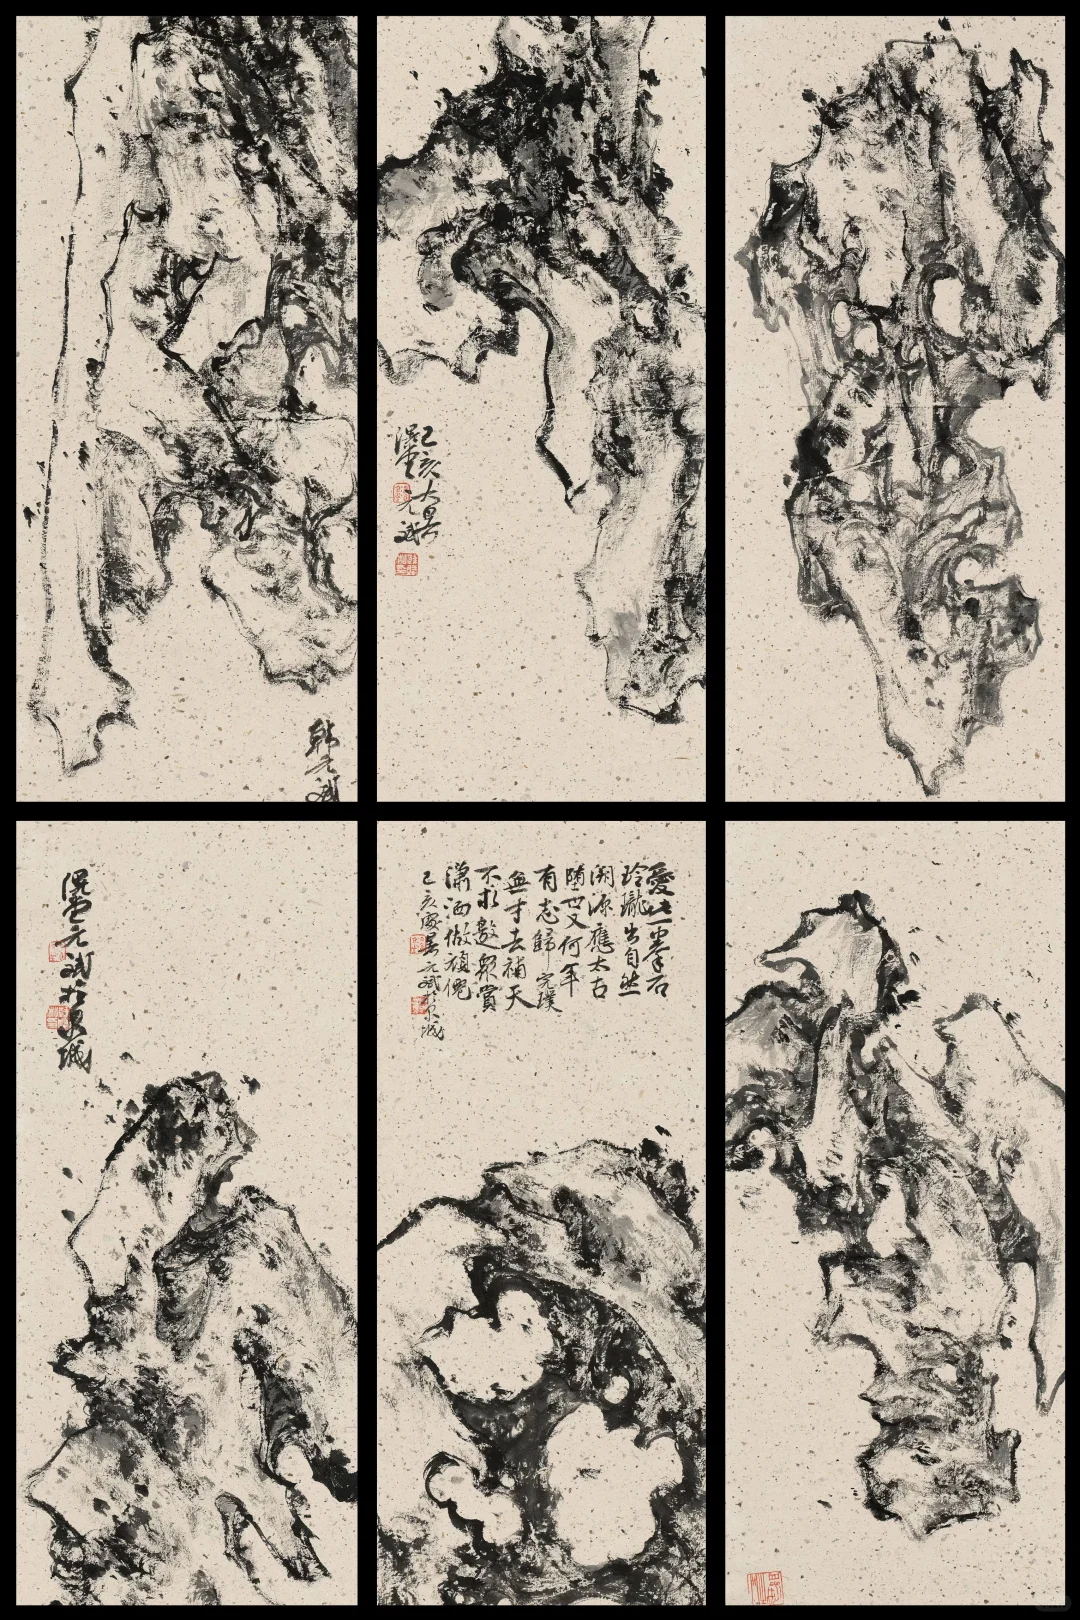 韩元斌
己亥大暑
元斌
元斌於泉城
愛此一拳石
玲瓏出自然
溯源應太古
墮世又何年
有志歸完璞
無才去補天
不求邀眾賞
瀟洒做頑僊
己亥處暑元斌於泉城